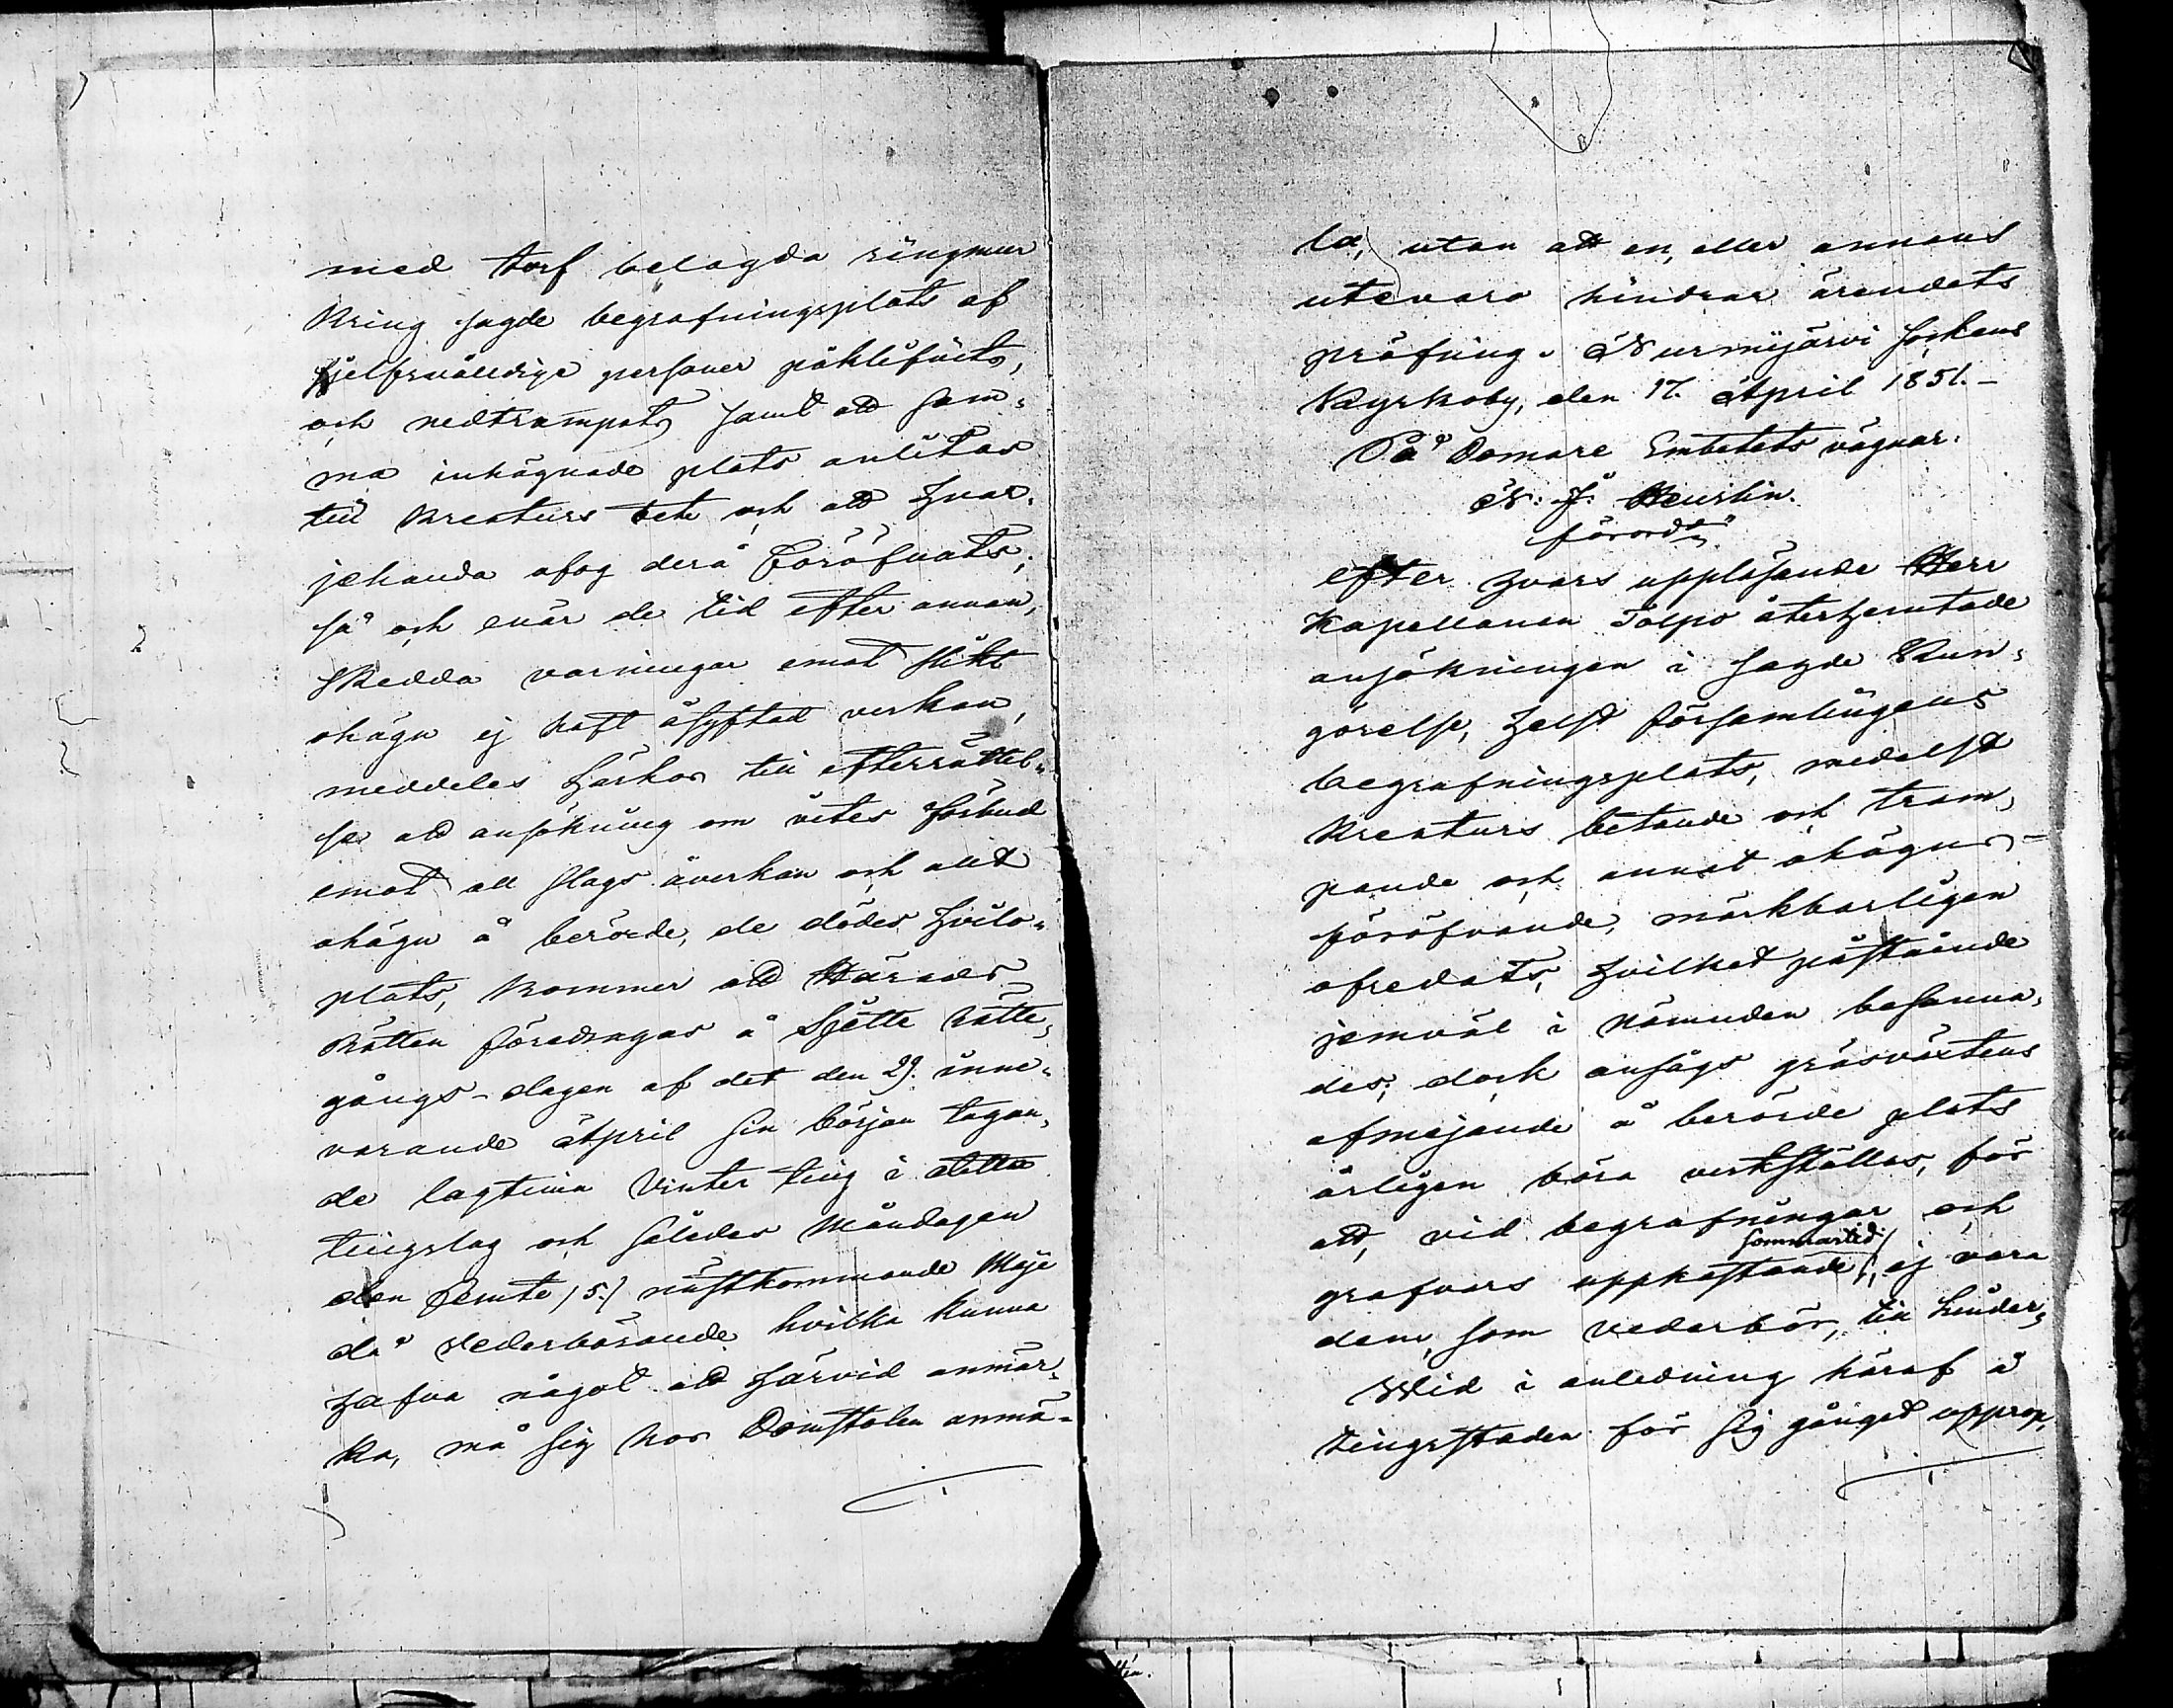 med torf belagda ringmur
kring sagde begrafningsplats af
sjelfsvåldige personer påklifvits,
och nedtrampats samt att sam-
ma inhägnade plats anlitas
till kreaturs bete och att hvar-
jehanda ofog derå föröfvats;
så och enär de tid efter annan,
skedda varningar emot slikt
ohägn ej haft åsyftad verkan,
meddeles härhos till efterrättel-
se att ansökning om vites förbud
emot all slags åverkan och allt
ohägn å berörde, de dödes hvilo-
plats, kommer att Härads
Rätten föredragas å Sjette rätte-
gångs-dagen af det den 29. inne-
varande April sin början tagan-
de lagtima Vinter ting i detta
tingslag och således Måndagen
den femte /5./ nästkommande Maji
då Vederbörande hvilka kunna
hafva något att härvid anmär-
ka, må sig hos Domstolen anmä-
la, utan att en, eller annans
utevaro hindrar ärendets
pröfning. Nurmijärvi Sockens
Kyrkoby, den 17. April 1851.-
På Domare Embetets vägnar.
N: J: Heurlin.
förord:
efter hvars uppläsande Herr
Kapellanen Tolpo återhemtade
ansökningen i sagde Kun-
görelse, helst församlingens
begrafningsplats, medelst
kreaturs betande och tram-
pande och annat ohägns-
föröfvande, märkbarligen
ofredats, hvilket påstående
jemväl i nämnden besanna-
des; dock ansågs gräsväxtens
afmejande å berörde plats
årligen böra verkställas, för
att, vid begrafningar och
grafvars uppkastande sommartid, ej vara
dem, som vederbör, till hinder,
Wid i anledning häraf å
tingsstaden för sig gånget upprop,